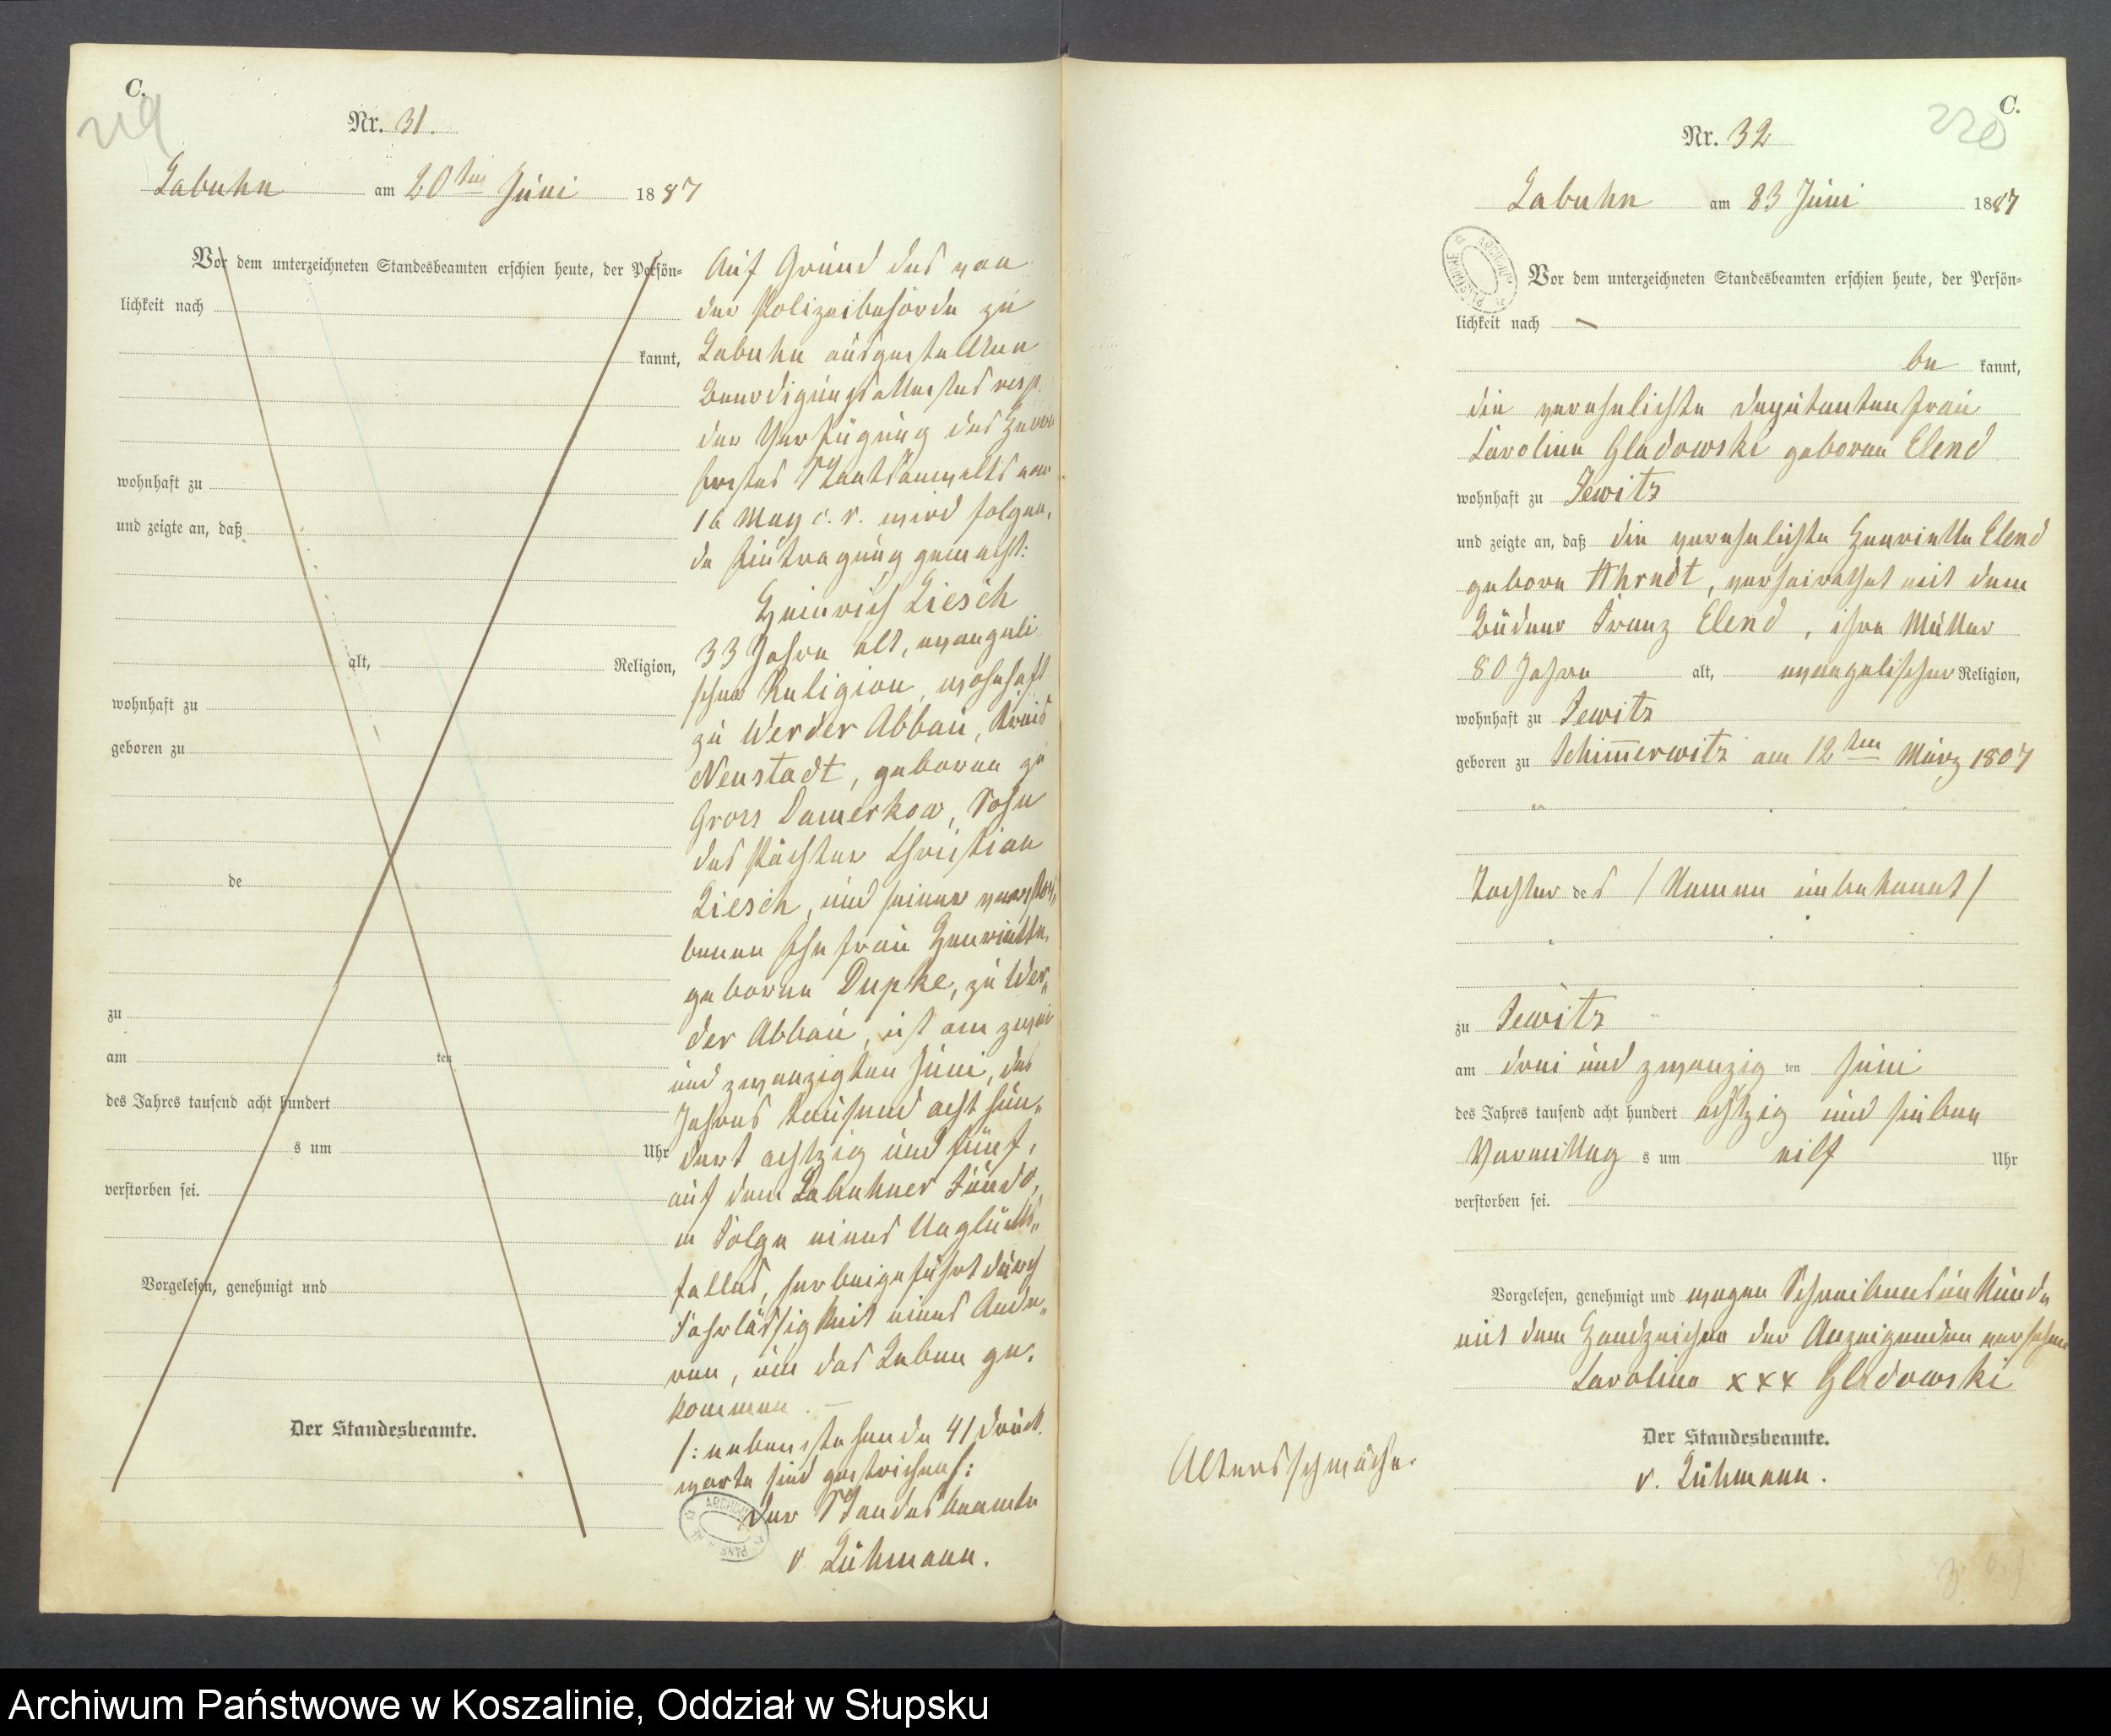 C.
219
Nr. 31.
Labuhn am 20ten Juni 1887
Vor dem unterzeichneten Standesbeamten erschien heute, der Persön-
lichkeit nach
kannt,
wohnhaft zu
und zeigte an, daß
alt, Religion,
wohnhaft zu
geboren zu
de
zu
am ten
des Jahres tausend acht hundert
s um Uhr
verstorben sei.
Vorgelesen, genehmigt und
Der Standesbeamte.
Auf Grund des von
der Polizeibehörde zu
Labuhn ausgestellten
Beerdigungsattestes resp.
der Verfügung des Herrn
Ersten Staatsanwalts vom
16 May c. r. wird folgen-
de Eintragung gemacht:
Heinrich Liesch
33 Jahre alt, evangeli
scher Religion, wohnhaft
zu Werder Abbau, Kreis
Neustadt, geboren zu
Gross Damerkow, Sohn
des Pächter Christian
Liesch, und seiner verstor„
benen Ehefrau Henriette,
geborene Dupke, zu Wer„
der Abbau, ist am zwei
und zwanzigten Juni, des
Jahres tausend acht hun„
dert achtzig und fünf,
auf dem Labuhner Felde,
in Folge eines Unglücks„
falles, herbeigeführt durch
Fahrlässigkeit eines Ande„
ren, um das Leben ge-
kommen. —
/: nebenstehende 41 Druck
worte sind gestrichen /:
Der Standesbeamte
v Lühmann.
C.
220
Nr. 32
Labuhn am 23 Juni 1887
Vor dem unterzeichneten Standesbeamten erschien heute, der Persön-
lichkeit nach —
be kannt,
die verehelichte Deputantenfrau
Caroline Gladowski geborene Elend
wohnhaft zu Jewitz
und zeigte an, daß die verehelichte Henriette Elend
geborn Ahrndt, verheirathet mit dem
Büdner Franz Elend, ihre Mutter
80 Jahre alt, evangelischer Religion,
wohnhaft zu Jewitz
geboren zu Schim̅erwitz am 12ten März 1807
Tochter des / Namen unbekannt /
zu Jewitz
am drei und zwanzig ten Juni
des Jahres tausend acht hundert achtzig und sieben
Vormittag s um elf Uhr
verstorben sei.
Vorgelesen, genehmigt und wegen Schreibensunkunde
mit dem Handzeichen der Anzeigenden versehen
Caroline x x x Gladowski
Der Standesbeamte.
v. Lühmann.
Altersschwäche.
Archiwum Państwowe w Koszalinie, Oddział w Słupsku